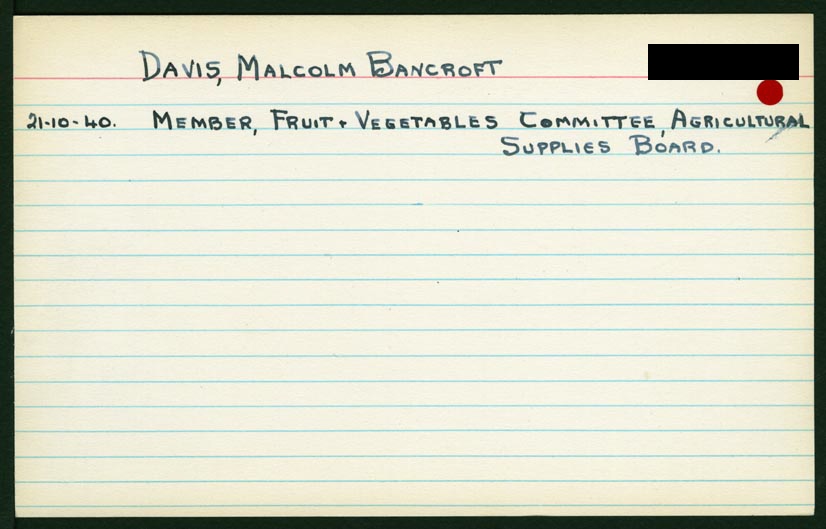 DAVIS, MALCOLM BANCROFT
21-10-40. MEMBER, FRUIT + VEGETABLES COMMITTEE, AGRICULTURAL
SUPPLIES BOARD.